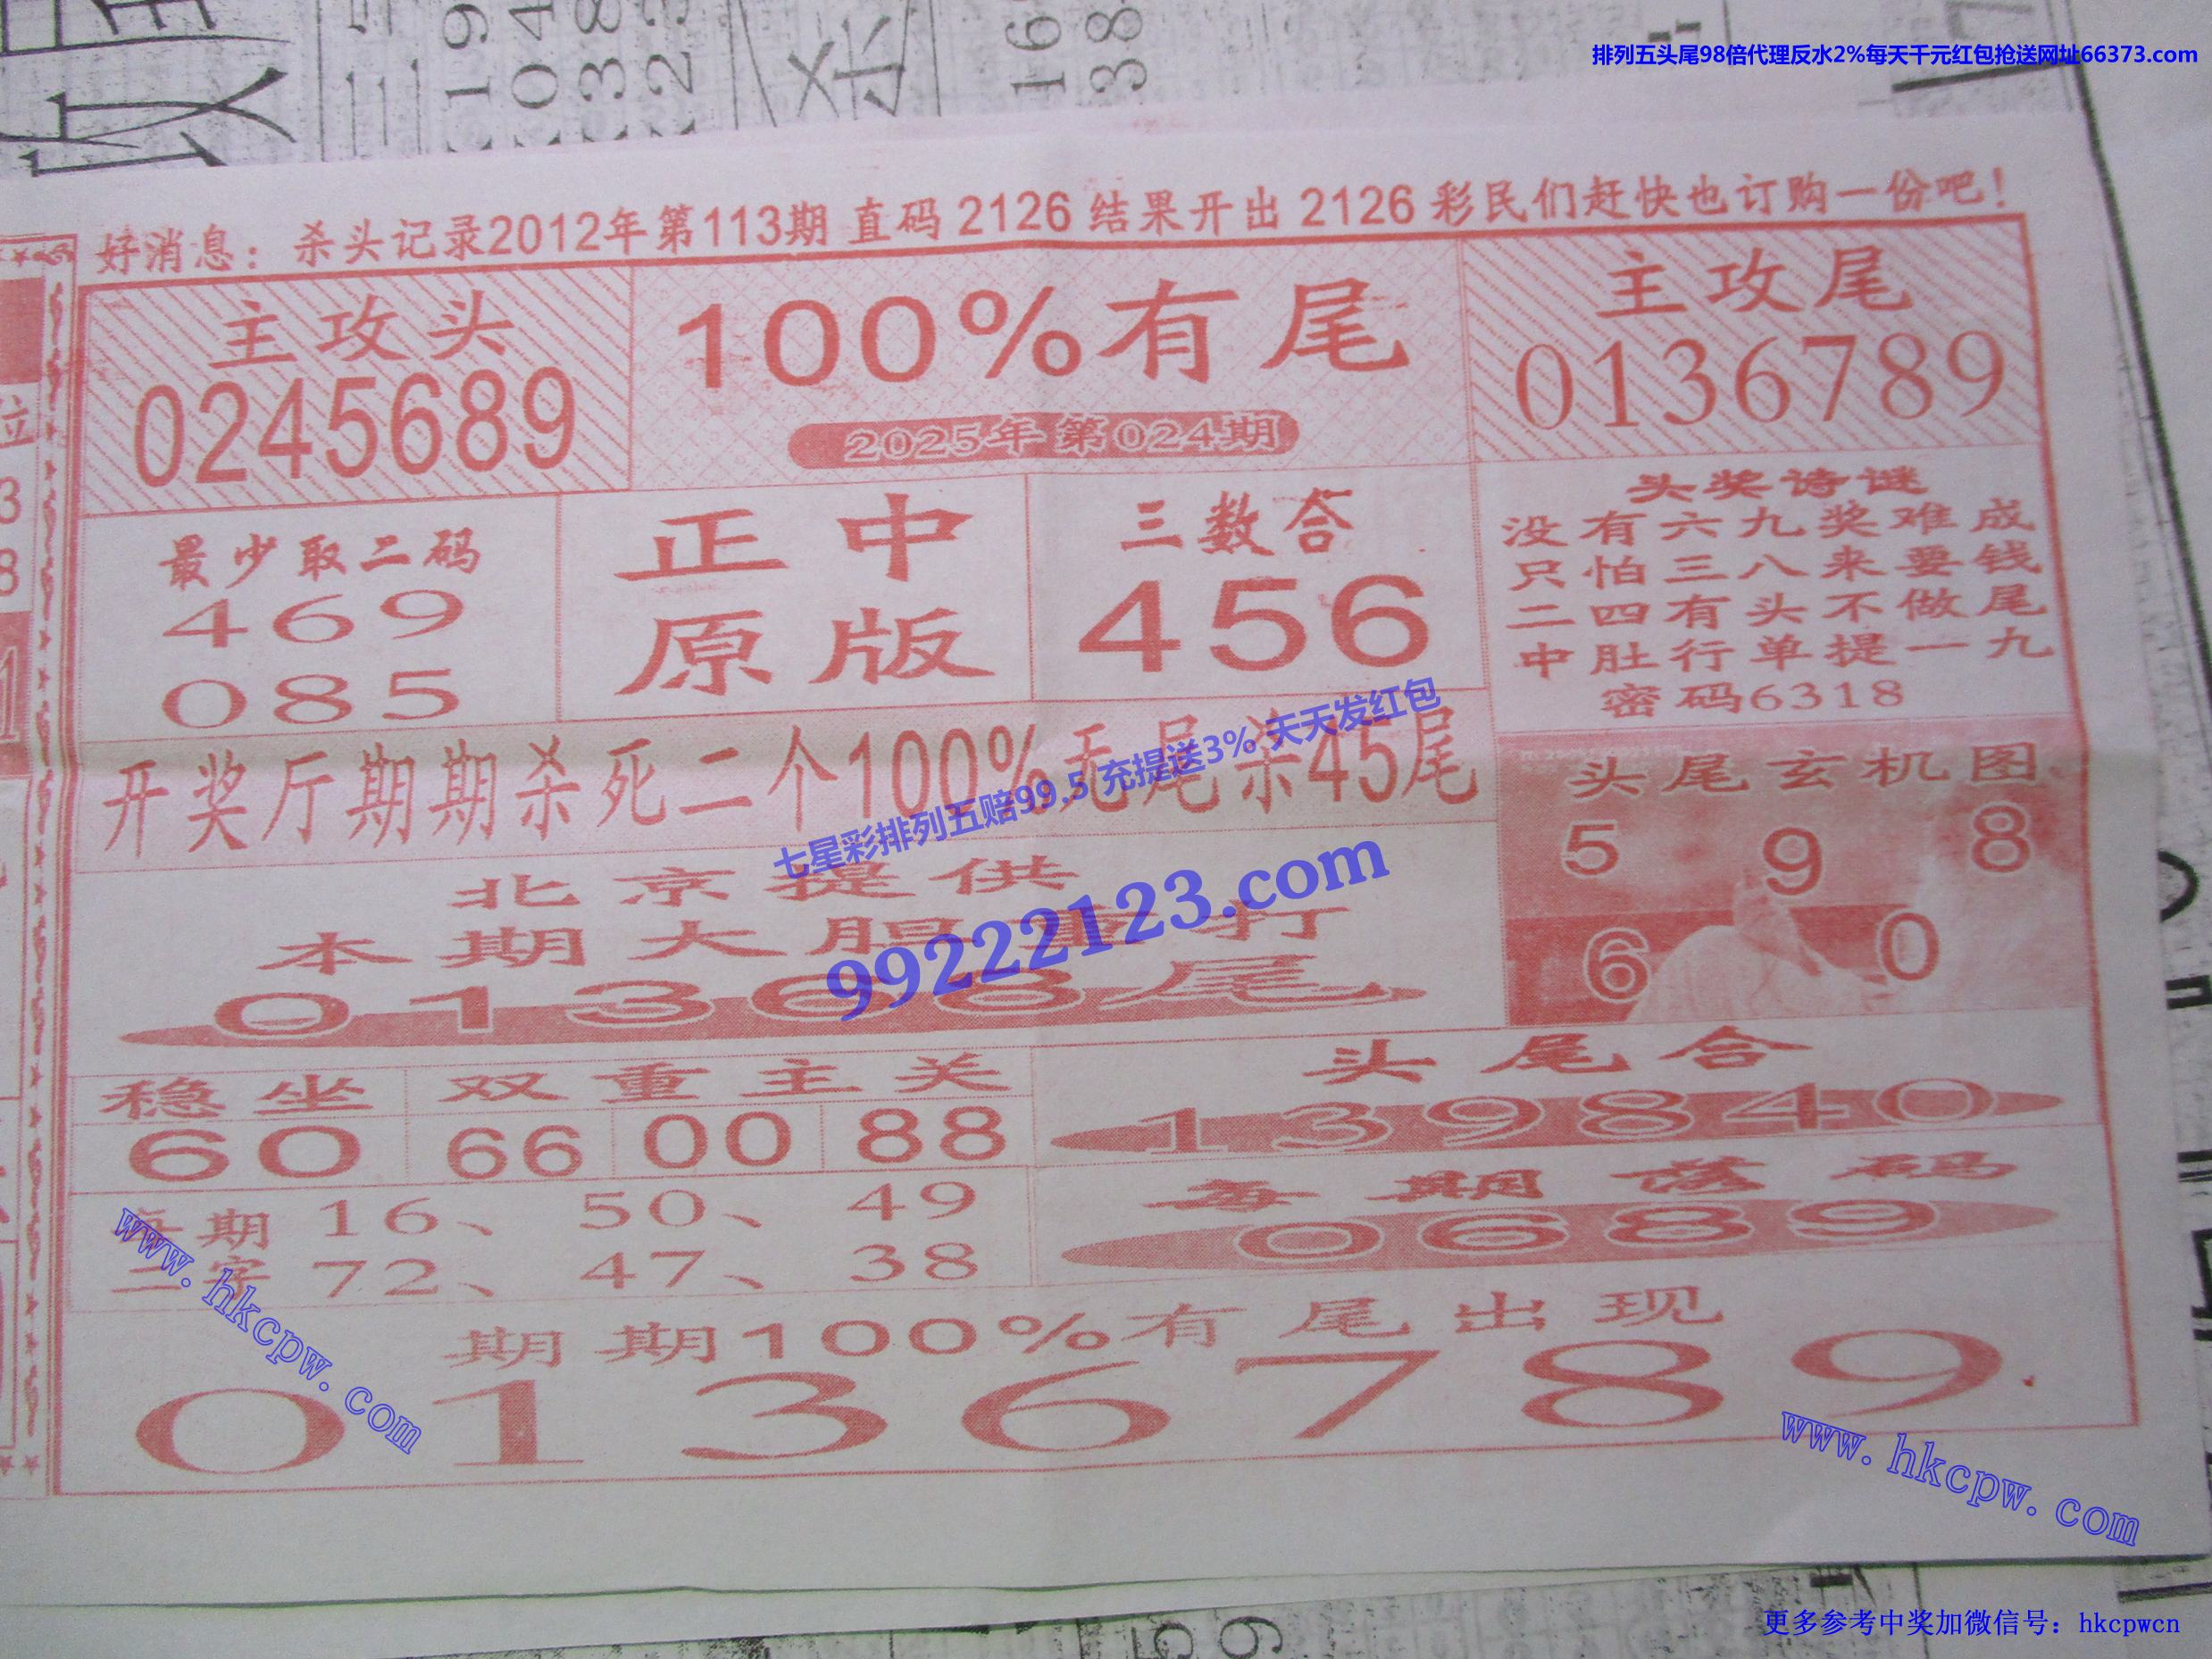 排列五头尾98倍代理反水2%每天千元红包抢送网址66373.com
好消息：杀头记录2012年第113期 直码 2126 结果开出 2126 彩民们赶快也订购一份吧！
主攻头
0245689
100%有尾
2025年第024期
主攻尾
0136789
最少取二码
469
085
正中
原版
三数合
456
头奖诗谜
没有六九奖难成
只怕三八来要钱
二四有头不做尾
中肚行单提一九
密码6318
开奖厅期期杀死二个100%无尾杀45尾
七星彩排列五赔99.5 充提送3% 天天发红包
99222123.com
头尾玄机图
5 9 8
6 0
北京提供
本期大胆重打
01368尾
稳坐
60
双重主关
66 00 88
头尾合
139840
每期二字
16、50、49
72、47、38
每期落码
0689
期期100%有尾出现
0136789
www.hkcpw.com
www.hkcpw.com
更多参考中奖加微信号：hkcpwcn